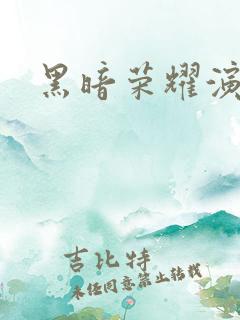 黑暗荣耀演
吉比特
未经同意禁止转载